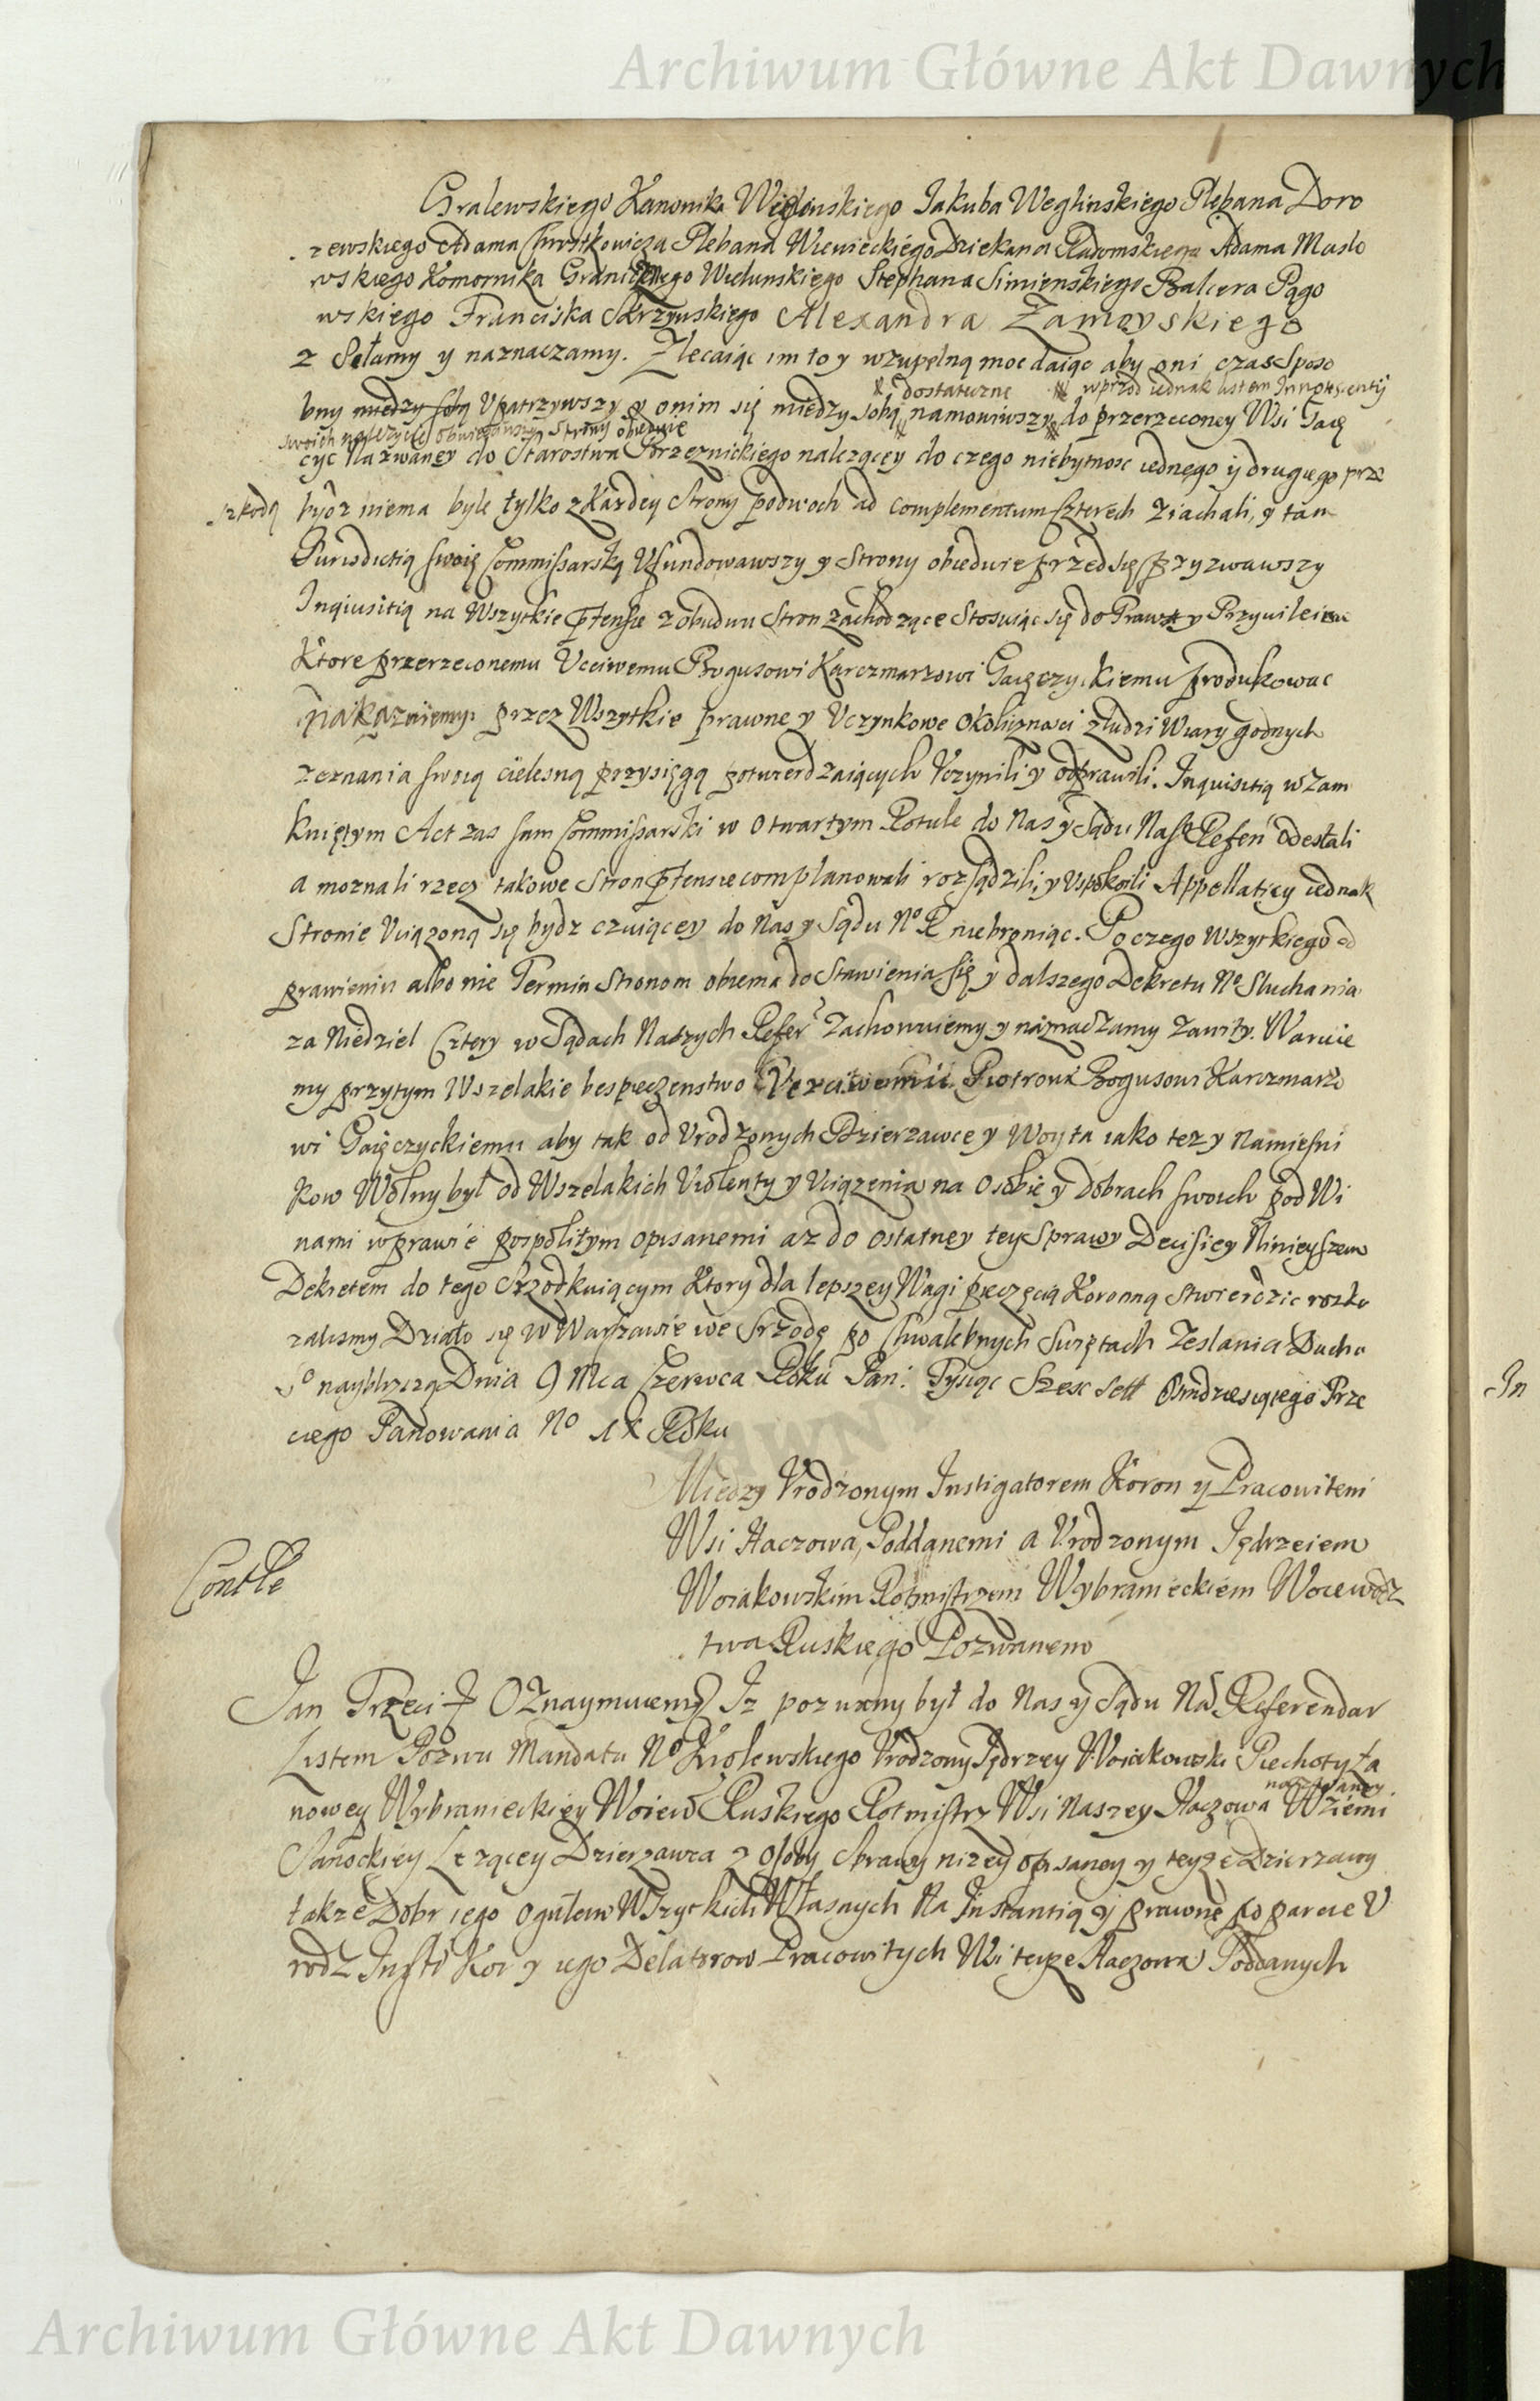 Archiwum Główne Akt Dawnych
Gralewskiego Kanonika Wielunskiego Jakuba Weglinskiego Plebana Doro
zewskiego Adama Plebana Wiewieckiego Dziekana Radomskiego Adama Maslo
wskiego Komornika Granicznego Wielunskiego Stephana Simienskiego Balcera Pągo
wskiego Franciska Skrzynskiego Alexandra Zamoyskiego
z Sełamy y naznaczamy. Zlecaiąc im to y wzupełną moc daiąc aby oni czas Sposo
dostateczne wprzod iednak listem Innotescentÿ
bny między sobą Upatrzywszy y onim się między sobą namowiwszy do przerzeconey Wsi Gaię
swoich należycie obwieściwszy Strony obiedwie
cyc Nazwaney do Starostwa Brzeznickiego nalezącey do czego niebytnosc iednego ÿ drugiego prze
szkodą bydz niema byle tylko z Kazdey Strony podwoch ad complementum Czterech ziachali, y tam
Jurisdictią swoię Commissarską Ufundowawszy y Strony obiedwie przed się przyzwawszy
Inqiusitią na Wszytkie ptensie z obudwu Stron zachodzące Stosuiąc się do Prawa y Przywileiow
Ktore przerzeconemu Ucciwemu Bogusowi Karczmarzowi Gaięczyckiemu produkowac
nakazuiemy. przez Wszytkie prawne y Uczynkowe Okolicznosci z ludzi Wiary godnych
zeznania swoią cielesną przysięgą potwierdzaiących Uczynili y odprawili. Inquisitią w zam
kniętym Act zas sam Commissarski w Otwartym Rotule do Nas y Sądu Nasz Refen odesłali
a moznali rzecz takowe Stron ptensie complanowali rozsądzili y Uspokoili Appellatiey iednak
Stronie Uciązoną się bydz czuiącey do Nas y Sądu No R niebroniąc. Po czego wszytkiego od
prawieniu albo nie Termin Stronom obiema do Stawienia się y dalszego Dekretu No Sluchania
za Niedziel Cztery w Sądach Naszych Refer Zachowuiemy y naznaczamy zawity. Waruie
my przytym Wszelakie bespieczenstwo Ucciwemu Piotrowi Bogusowi Karczmarzo
wi Gaięczyckiemu aby tak od Urodzonych Dzierzawce y Woyta iako tez y Namiesni
kow Wolny był od Wszelakich Violenty y Uciązenia na Osobie y dobrach swoich pod Wi
nami w prawie pospolitym opisanemi az do ostatney tey Sprawy Decisiey Ninieyszem
Dekretem do tego Srzodkuiącym Ktory dla lepszey Wagi pieczęcią Koronną stwierdzic rozka
zalismy Działo się w Warszawie we Srzodę po chwalebnych Swiętach Zeslania Ducha
So nayblizszą Dnia 9 Mca Czerwca Roku Pan: Tysiąc Szesc Set Osmdziesiątego Trze
ciego Panowania No IX Roku
Między Urodzonym Instigatorem Koron y Pracowitemi
Wsi Haczowa, Poddanemi a Urodzonym Jędrzeiem
Woiakowskim Rotmistrzem Wybranieckiem Woiewodz
twa Ruskiego Pozwanem
Jan Trzeci Oznaymuiemy Iz pozwany był do Nas y Sądu Nas Referendar
Listem Pozwu Mandatu No Krolewskiego Urodzony Jędrzey Woiakowski Piechoty Ła
nowey Wybranieckiey Woiew Ruskiego Rotmistrz Wsi Naszey Haczowa nazwaney Wziemi
Sanockiey Lezącey Dzierzawca z Osoby Sprawy nizey opisaney y teyze Dzierzawy
takze Dobr iego ogułem Wszytkich Własnych Na Instantią y prawne poparcie U
rodz Insti Kor y iego Delatorow Pracowitych Wsi teyze Haczowa Poddanych
In
Archiwum Główne Akt Dawnych